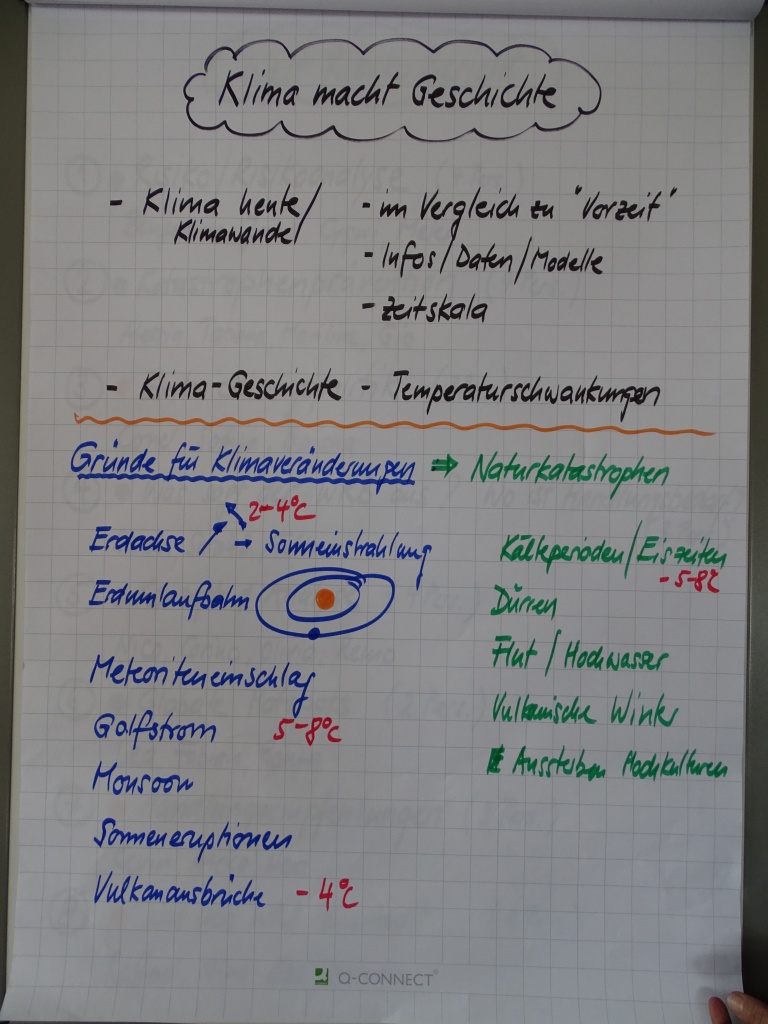 Klima macht Geschichte
- Klima heute/
Klimawandel
- im Vergleich zu "Vorzeit"
- Infos/Daten/Modelle
- Zeitskala
- Klima-Geschichte - Temperaturschwankungen
Gründe für Klimaveränderungen ⇒ Naturkatastrophen
2-4°C
Erdachse → Sonneinstrahlung
Erdumlaufbahn
Meteoriteneinschlag
Golfstrom 5-8°C
Monsoon
Sonneneruptionen
Vulkanausbrüche - 4°C
Kälteperioden/Eiszeiten
- 5-8°C
Dürren
Flut / Hochwasser
Vulkanische Winter
Aussterben Hochkulturen
Q-CONNECT